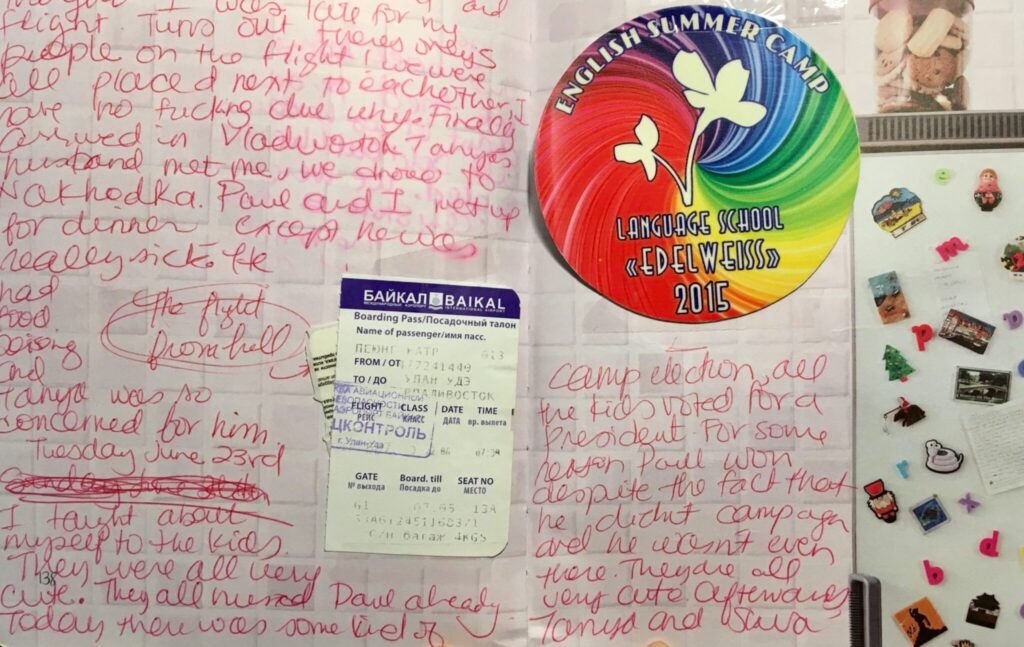 I was late for my
flight. Turns out theres only 5
people on the flight & we were
all placed next to eachother, I
have no fucking clue why. Finally
arrived in Vladivostok Tanya's
husband met me, we drove to
Nakhodka. Paul and I met up
for dinner except he was
really sick. He
had
food
poising
and
Tanya was so
concerned for him.
The flight
from hell
БАЙКАЛ BAIKAL
МЕЖДУНАРОДНЫЙ АЭРОПОРТ INTERNATIONAL AIRPORT
Boarding Pass/Посадочный талон
Name of passenger/имя пасс.
013
FROM / ОТ
TO / ДО УЛАН УДЭ
ВЛАДИВОСТОК
FLIGHT CLASS DATE TIME
РЕЙС КЛАСС ДАТА вр. вылета
АВИАЦИОННОЙ
БЕЗОПАСНОСТИ
АЭРОПОРТ БАЙКАЛ
ЦКОНТРОЛЬ
г. Улан-Удэ
GATE Board. till SEAT NO
№ выхода Посадка до МЕСТО
13A
Tuesday June 23rd
I taught about
myself to the kids.
They were all very
cute. They all missed Paul already
Today there was some kid of
138
ENGLISH SUMMER CAMP
LANGUAGE SCHOOL
«EDELWEISS»
2015
camp election, all
the kids voted for a
president. For some
reason Paul won
despite the fact that
he didnt campaign
and he wasn't even
there. They are all
very cute. Afterwards
Tanya and
e
m
p
p
r
x
d
b